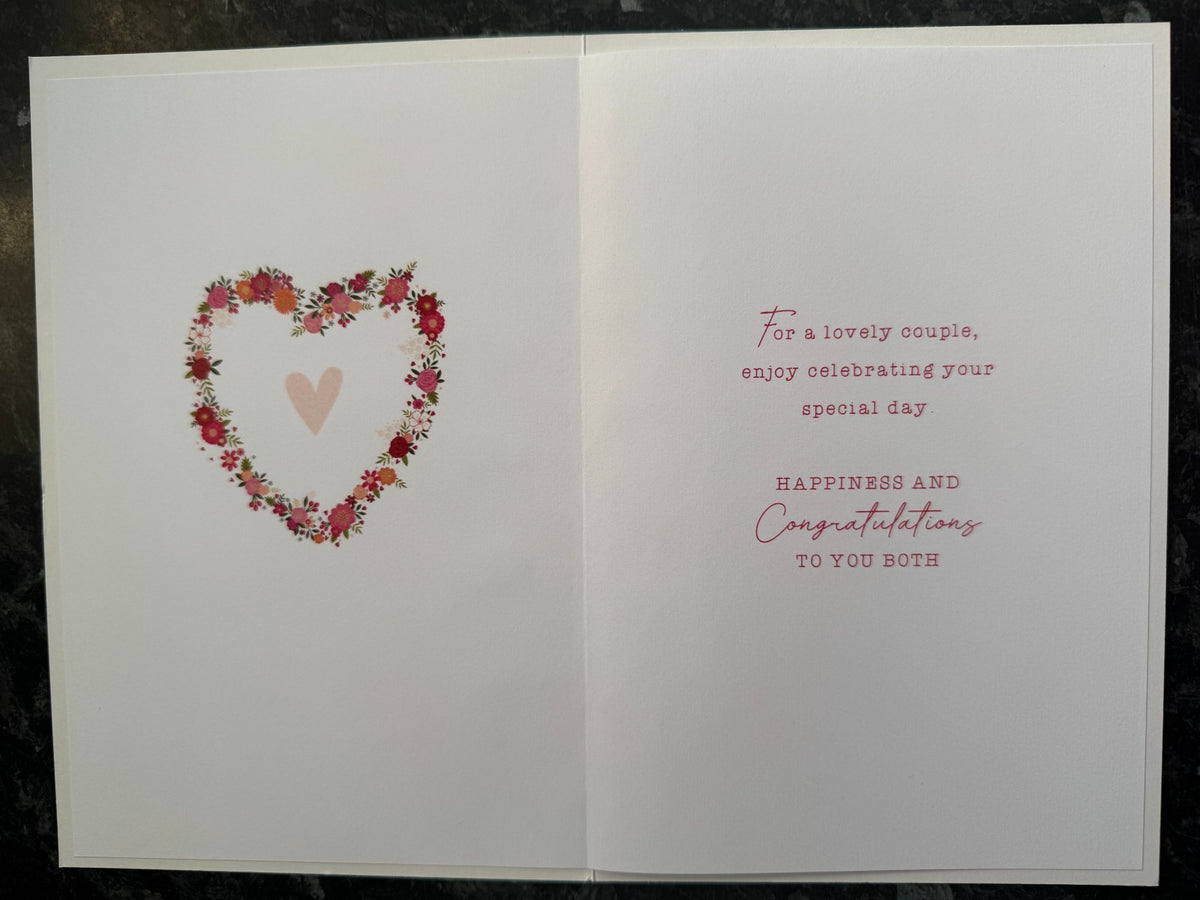 For a lovely couple,
enjoy celebrating your
special day.
HAPPINESS AND
Congratulations
TO YOU BOTH